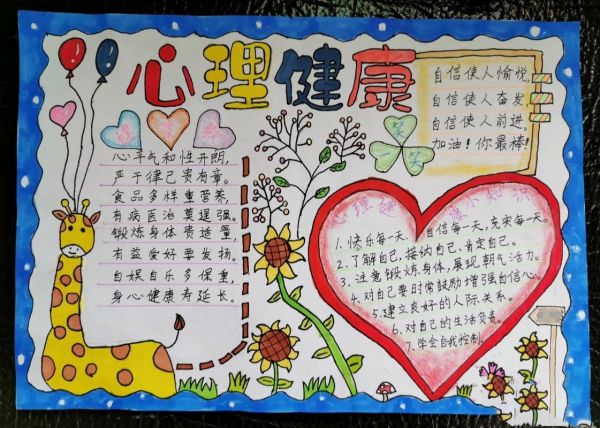 心理健康
自信使人愉悦,
自信使人奋发,
自信使人前进。
加油!你最棒!
心平气和性开朗,
严于律己贵有章。
食品多样重营养,
有病医治莫逞强。
锻炼身体贵适量,
有益爱好要发扬。
自娱自乐多保重,
身心健康寿延长。
心理健康小知识
1.快乐每一天,自信每一天,充实每一天。
2.了解自己,接纳自己,肯定自己。
3.注意锻炼身体,展现朝气活力。
4.对自己要时常鼓励增强自信心。
5.建立良好的人际关系。
6.对自己的生活负责。
7.学会自我控制。